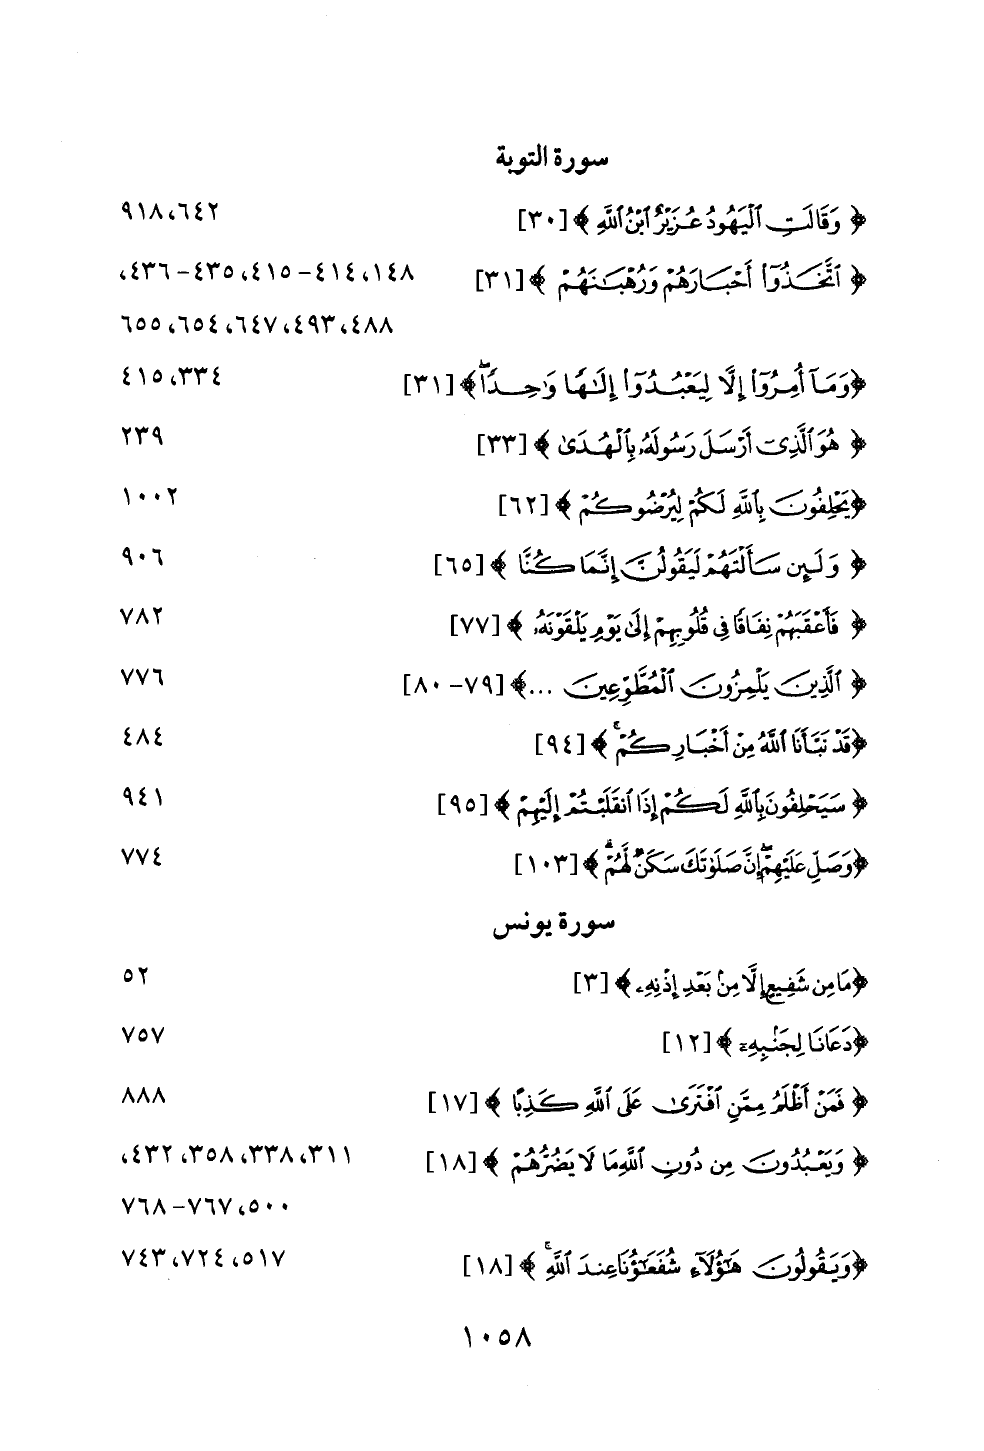 سورة التوبة
﴿ وَقَالَتِ ٱلْيَهُودُ عُزَيْرٌ ٱبْنُ ٱللَّهِ ﴾ [٣٠] ٦٤٢، ٩١٨
﴿ ٱتَّخَذُوٓا۟ أَحْبَارَهُمْ وَرُهْبَـٰنَهُمْ ﴾ [٣١] ١٤٨، ٤١٤–٤١٥، ٤٣٥–٤٣٦،
٤٨٨، ٤٩٣، ٦٤٧، ٦٥٤، ٦٥٥
﴿وَمَآ أُمِرُوٓا۟ إِلَّا لِيَعْبُدُوٓا۟ إِلَـٰهًا وَٰحِدًا ۖ﴾ [٣١] ٣٣٤، ٤١٥
﴿ هُوَ ٱلَّذِىٓ أَرْسَلَ رَسُولَهُۥ بِٱلْهُدَىٰ ﴾ [٣٣] ٢٣٩
﴿يَحْلِفُونَ بِٱللَّهِ لَكُمْ لِيُرْضُوكُمْ ﴾ [٦٢] ١٠٠٢
﴿ وَلَئِن سَأَلْتَهُمْ لَيَقُولُنَّ إِنَّمَا كُنَّا ﴾ [٦٥] ٩٠٦
﴿ فَأَعْقَبَهُمْ نِفَاقًا فِى قُلُوبِهِمْ إِلَىٰ يَوْمِ يَلْقَوْنَهُۥ ﴾ [٧٧] ٧٨٢
﴿ ٱلَّذِينَ يَلْمِزُونَ ٱلْمُطَّوِّعِينَ ...﴾ [٧٩–٨٠] ٧٧٦
﴿قَدْ نَبَّأَنَا ٱللَّهُ مِنْ أَخْبَارِكُمْ ۚ ﴾ [٩٤] ٤٨٤
﴿ سَيَحْلِفُونَ بِٱللَّهِ لَكُمْ إِذَا ٱنقَلَبْتُمْ إِلَيْهِمْ ﴾ [٩٥] ٩٤١
﴿وَصَلِّ عَلَيْهِمْ ۖ إِنَّ صَلَوٰتَكَ سَكَنٌ لَّهُمْ ۗ ﴾ [١٠٣] ٧٧٤
سورة يونس
﴿مَا مِن شَفِيعٍ إِلَّا مِنۢ بَعْدِ إِذْنِهِۦ ﴾ [٣] ٥٢
﴿دَعَانَا لِجَنۢبِهِۦٓ ﴾ [١٢] ٧٥٧
﴿ فَمَنْ أَظْلَمُ مِمَّنِ ٱفْتَرَىٰ عَلَى ٱللَّهِ كَذِبًا ﴾ [١٧] ٨٨٨
﴿ وَيَعْبُدُونَ مِن دُونِ ٱللَّهِ مَا لَا يَضُرُّهُمْ ﴾ [١٨] ٣١١، ٣٣٨، ٣٥٨، ٤٣٢،
٥٠٠، ٧٦٧–٧٦٨
﴿وَيَقُولُونَ هَـٰٓؤُلَآءِ شُفَعَـٰٓؤُنَا عِندَ ٱللَّهِ ۚ ﴾ [١٨] ٥١٧، ٧٢٤، ٧٤٣
١٠٥٨